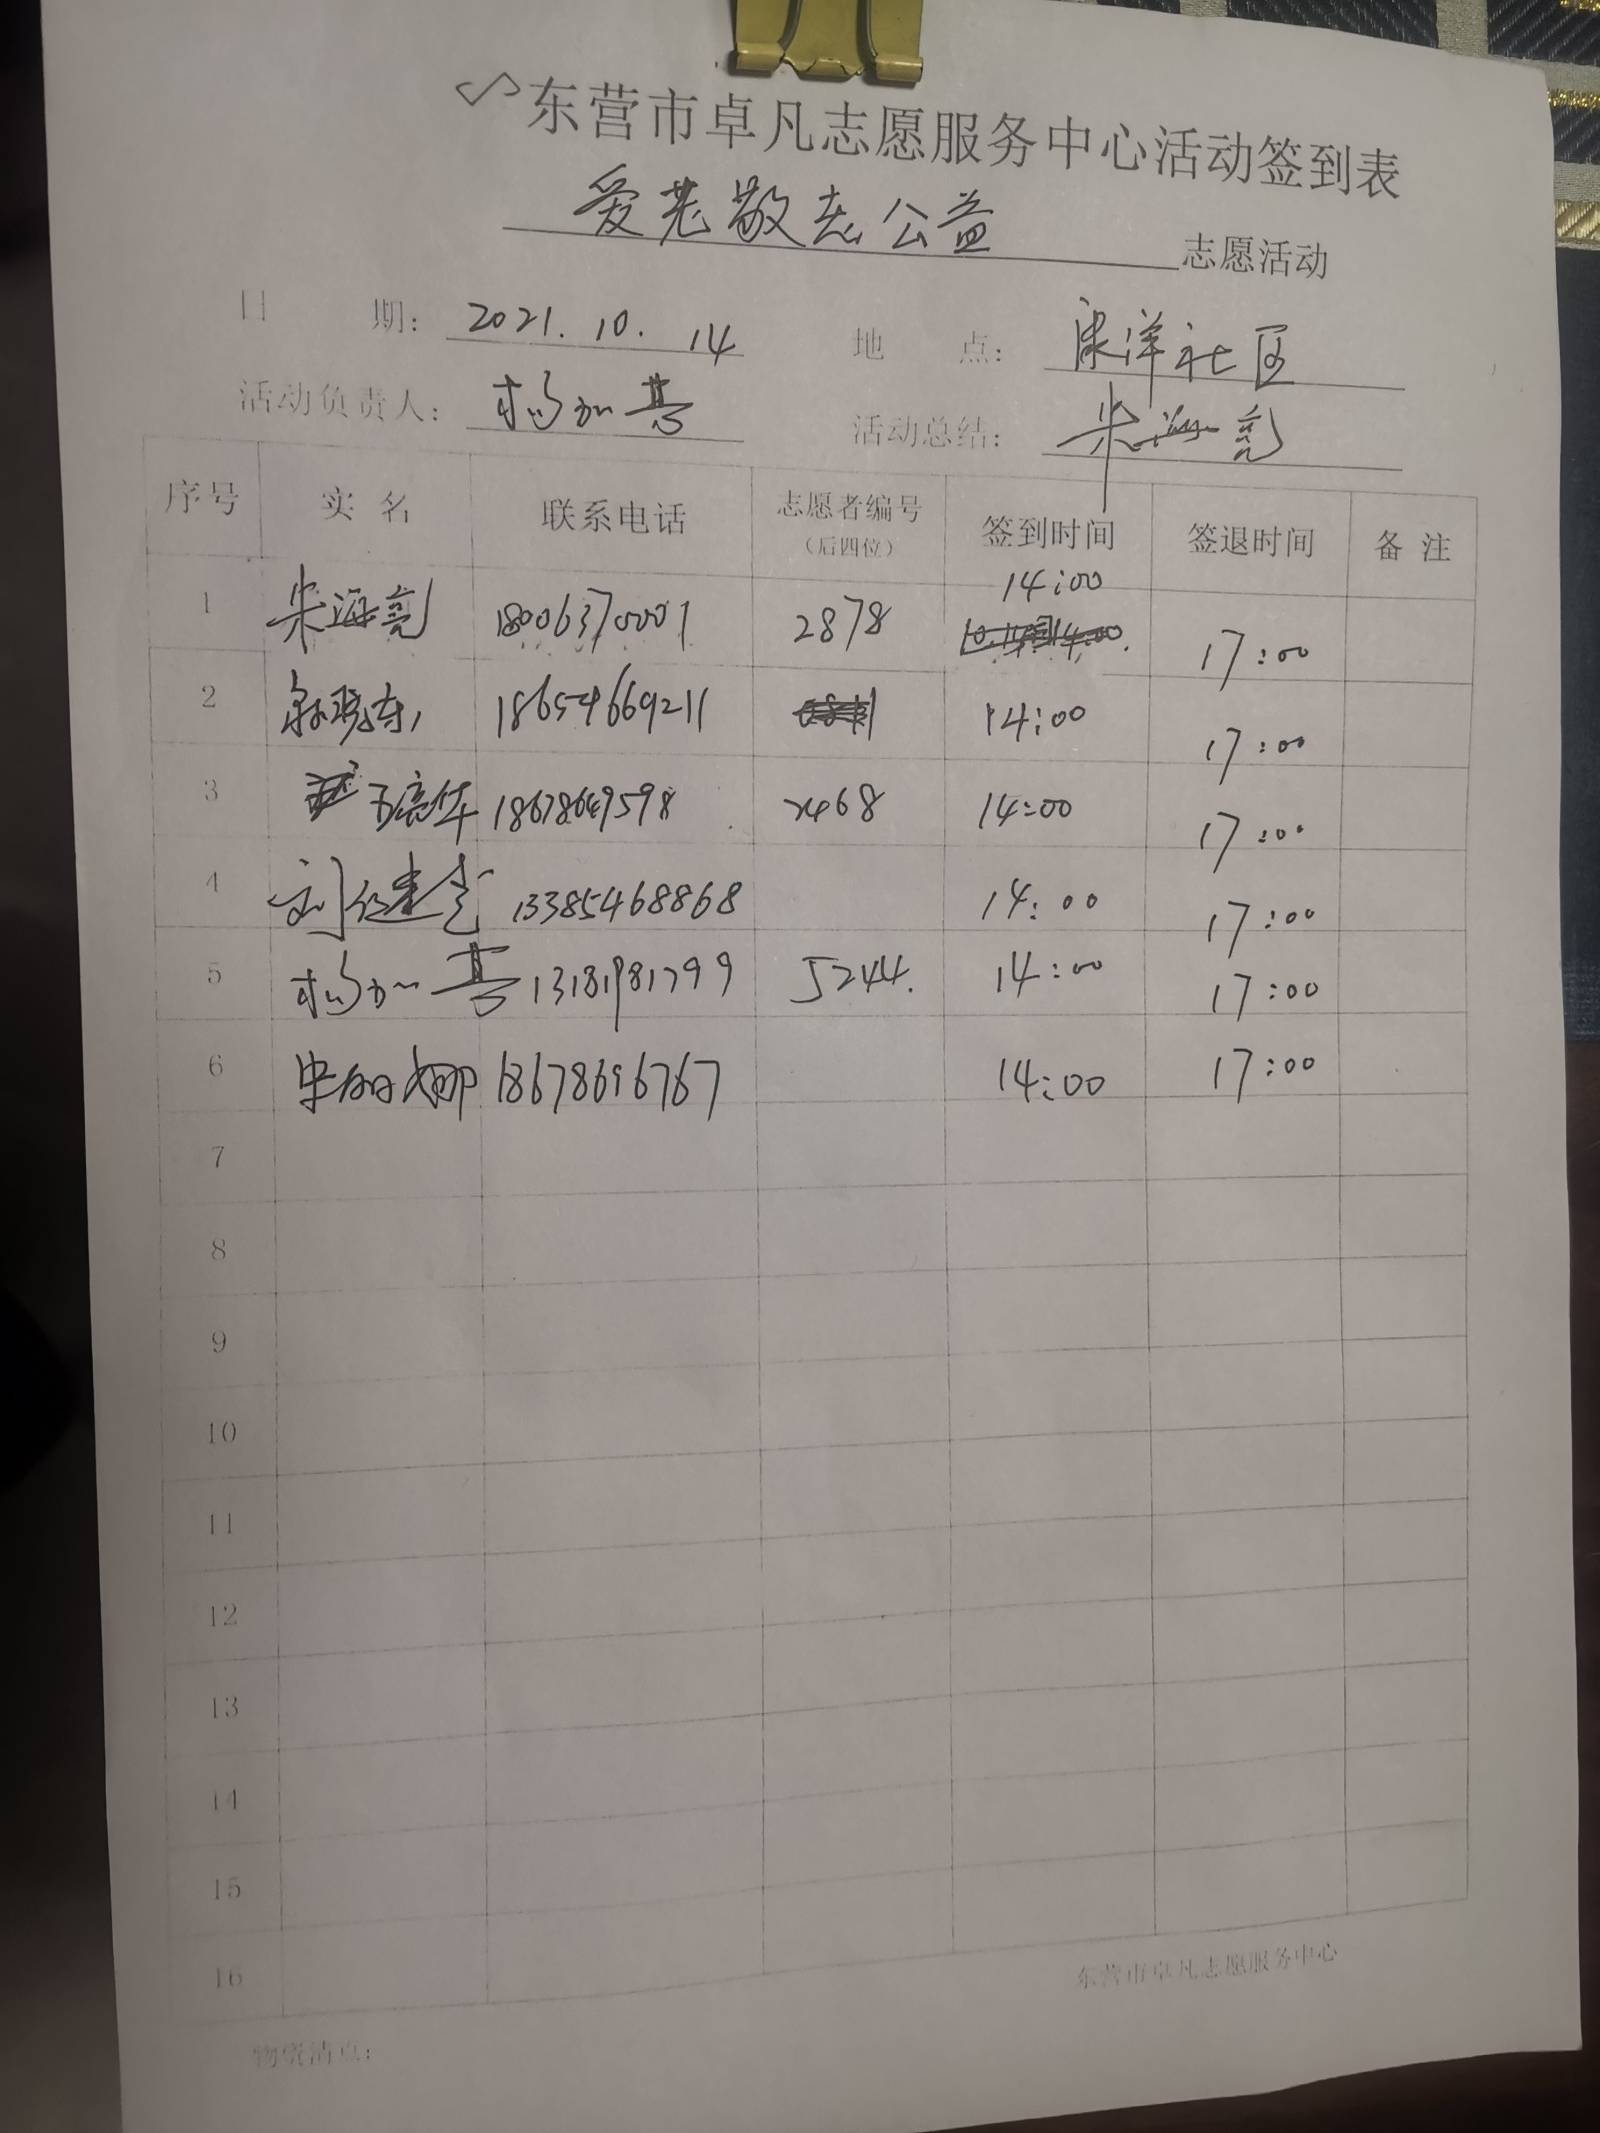 东营市卓凡志愿服务中心活动签到表
爱老敬老公益 志愿活动
日 期: 2021.10.14 地 点: 康洋社区
活动负责人: 杨加喜 活动总结: 朱海亮
序号 实 名 联系电话 志愿者编号（后四位） 签到时间 签退时间 备 注
1 朱海亮 18006370001 2878 14:00 17:00
2 18654669211 14:00 17:00
3 18678649598 2468 14:00 17:00
4 刘 13385468868 14:00 17:00
5 杨加喜 13181981799 5244. 14:00 17:00
6 18678696767 14:00 17:00
7
8
9
10
11
12
13
14
15
16
东营市卓凡志愿服务中心
物资清点: